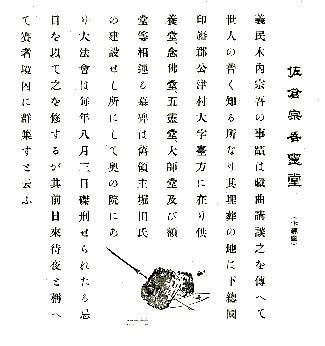 佐倉宗吾靈堂
義民木内宗吾の事蹟は戯曲講談之を傳へて
世人の普く知る所なり其埋葬の地に下總國
印旛郡公津村大字臺方に在り供
養堂念佛堂、五靈堂大師堂及び額
堂等相連る墓碑は舊領主堀田氏
の建設せし所にして奥の院にあ
り大法會は毎年八月三日磔刑せられたる忌
日を以て之を修するが其前日來待夜と稱へ
て賽者境内に群集すと云ふ